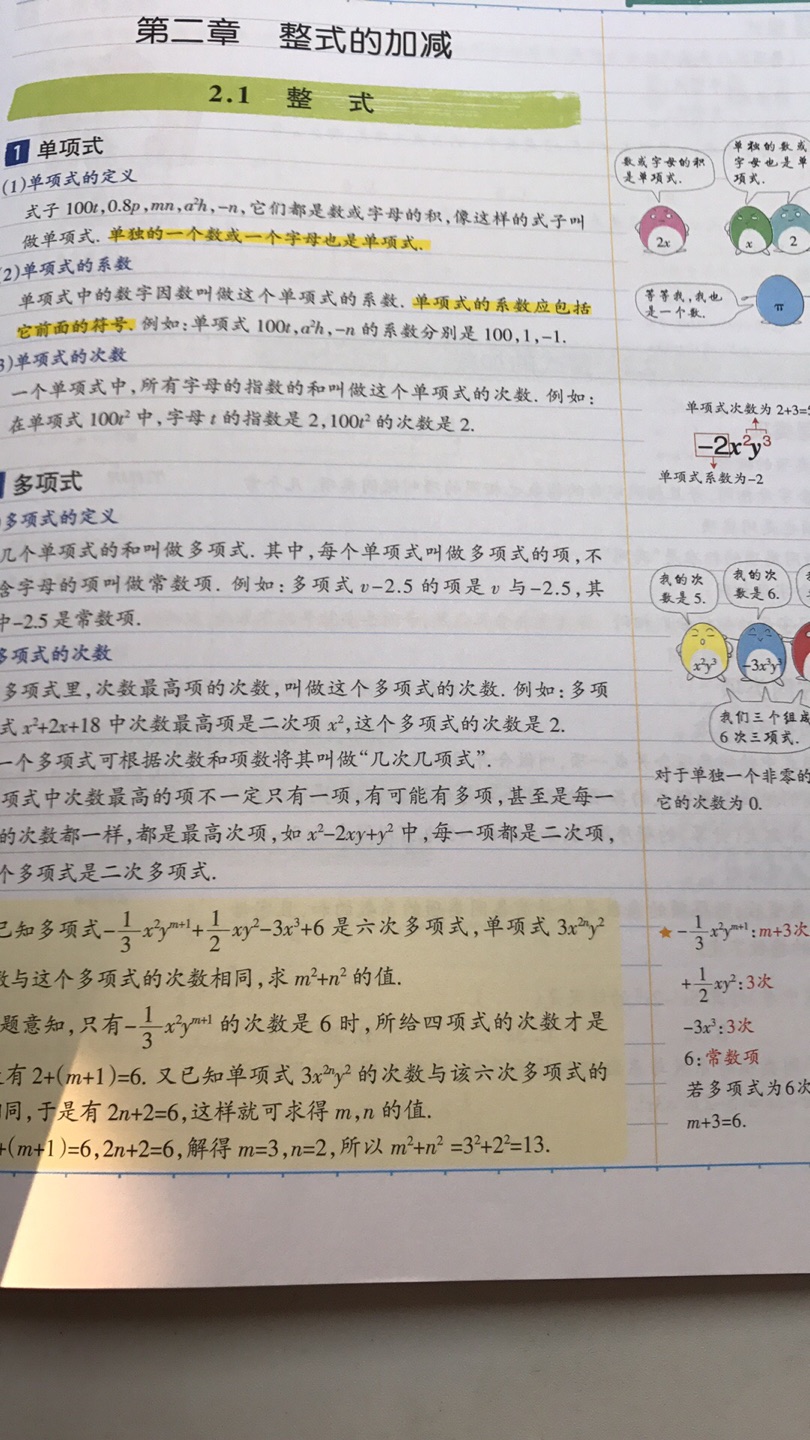 第二章 整式的加减
2.1 整 式
1 单项式
(1)单项式的定义
式子100t,0.8p,mn,a²h,-n,它们都是数或字母的积,像这样的式子叫
做单项式.单独的一个数或一个字母也是单项式.
2)单项式的系数
单项式中的数字因数叫做这个单项式的系数.单项式的系数应包括
它前面的符号.例如:单项式100t,a²h,-n的系数分别是100,1,-1.
3)单项式的次数
一个单项式中,所有字母的指数的和叫做这个单项式的次数.例如:
在单项式100t²中,字母t的指数是2,100t²的次数是2.
多项式
)多项式的定义
几个单项式的和叫做多项式.其中,每个单项式叫做多项式的项,不
含字母的项叫做常数项.例如:多项式v-2.5的项是v与-2.5,其
中-2.5是常数项.
多项式的次数
多项式里,次数最高项的次数,叫做这个多项式的次数.例如:多项
式x²+2x+18中次数最高项是二次项x²,这个多项式的次数是2.
一个多项式可根据次数和项数将其叫做“几次几项式”.
项式中次数最高的项不一定只有一项,有可能有多项,甚至是每一
的次数都一样,都是最高次项,如x²-2xy+y²中,每一项都是二次项,
个多项式是二次多项式.
已知多项式-1/3x²yᵐ⁺¹+1/2xy²-3x³+6是六次多项式,单项式3x²ⁿy²
数与这个多项式的次数相同,求m²+n²的值.
题意知,只有-1/3x²yᵐ⁺¹的次数是6时,所给四项式的次数才是
有2+(m+1)=6.又已知单项式3x²ⁿy²的次数与该六次多项式的
同,于是有2n+2=6,这样就可求得m,n的值.
+(m+1)=6,2n+2=6,解得m=3,n=2,所以m²+n²=3²+2²=13.
数或字母的积
是单项式.
单独的数或
字母也是单
项式.
2x
x
2
等等我,我也
是一个数.
π
单项式次数为2+3=
-2x²y³
单项式系数为-2
我的次
数是5.
我的次
数是6.
x²y³
-3x³y³
我们三个组成
6次三项式.
对于单独一个非零的
它的次数为0.
★-1/3x²yᵐ⁺¹:m+3次
+1/2xy²:3次
-3x³:3次
6:常数项
若多项式为6次
m+3=6.